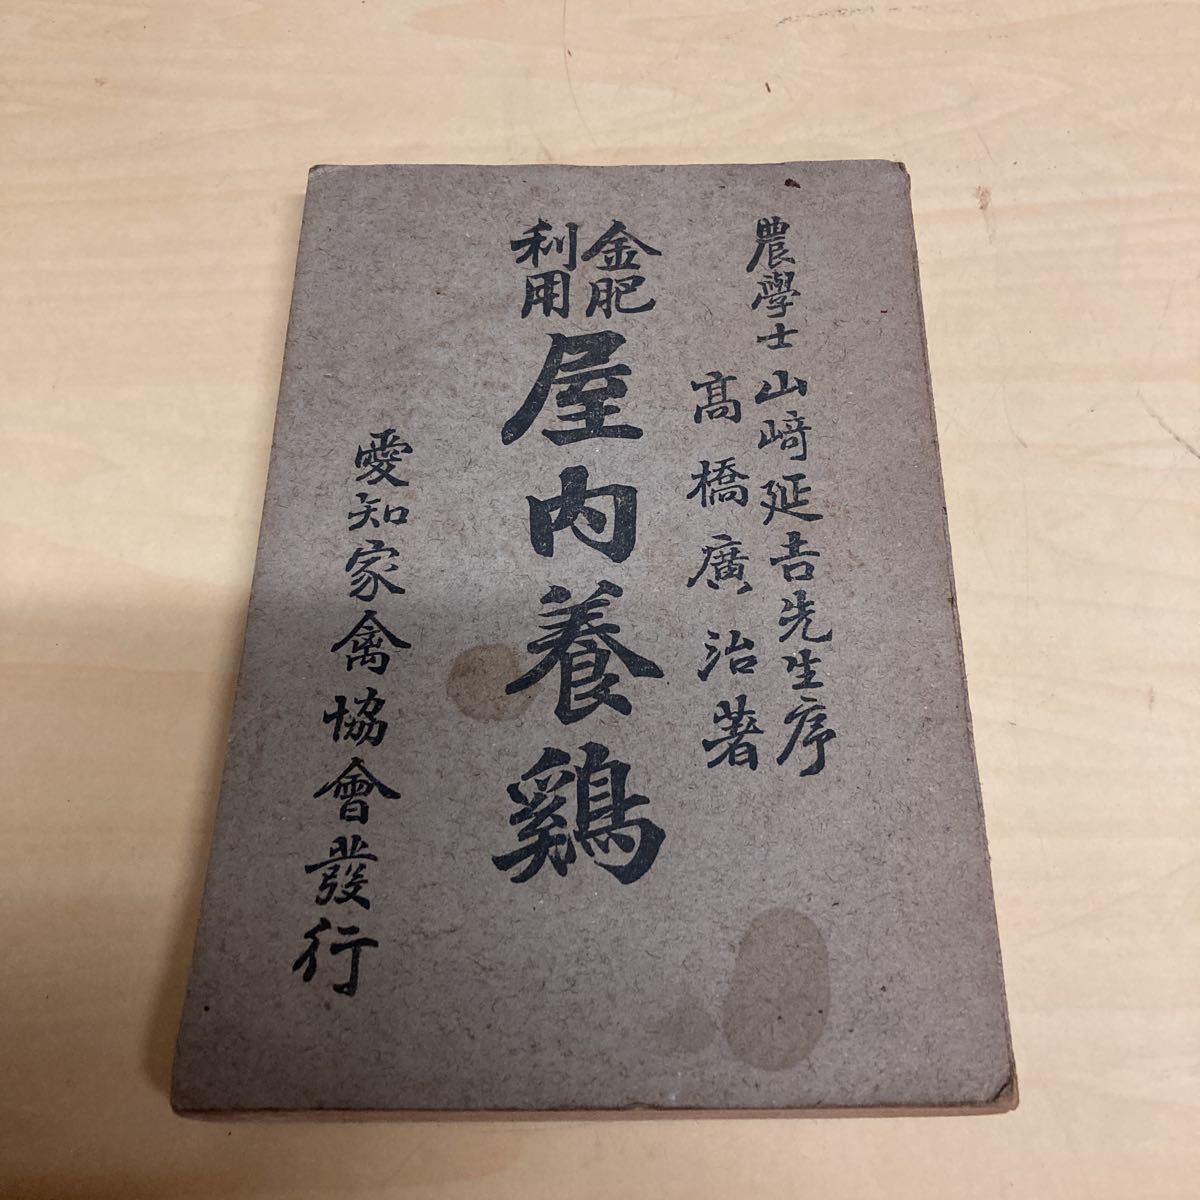 農學士山﨑延吉先生序
髙橋廣治著
金肥
利用
屋内養鷄
愛知家禽協會發行